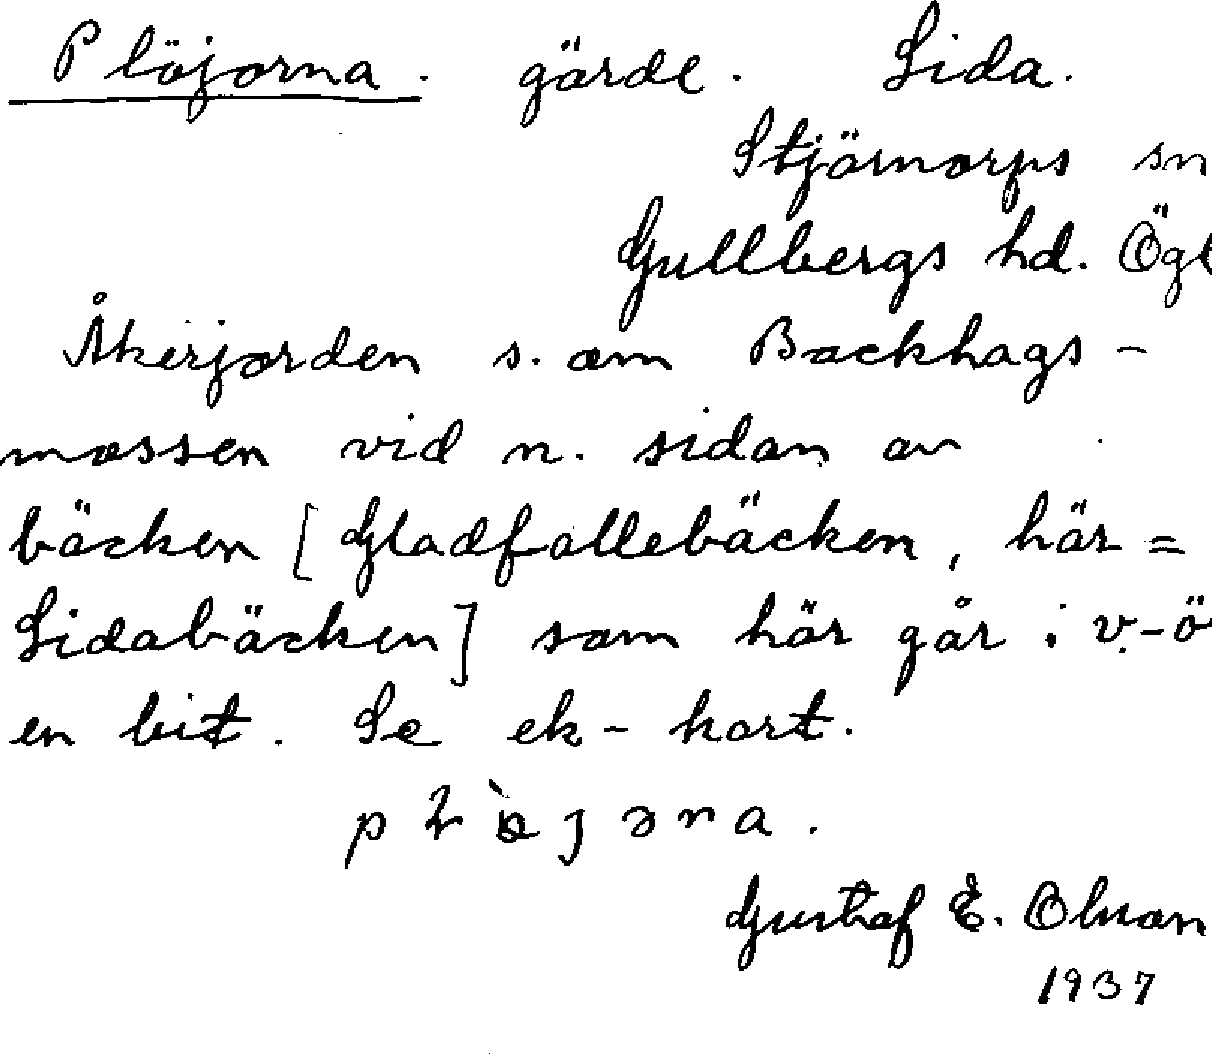 Plöjorna. gärde. Sida.
Stjärnorps sn
Gullbergs hd. Ögl
Åkerjorden s. om Backhags-
mossen vid n. sidan av
bäcken [Gladfallebäcken, här =
Sidabäcken] som här går i v.-ö
en bit. Se ek-kart.
Gustaf E. Olsson
1937